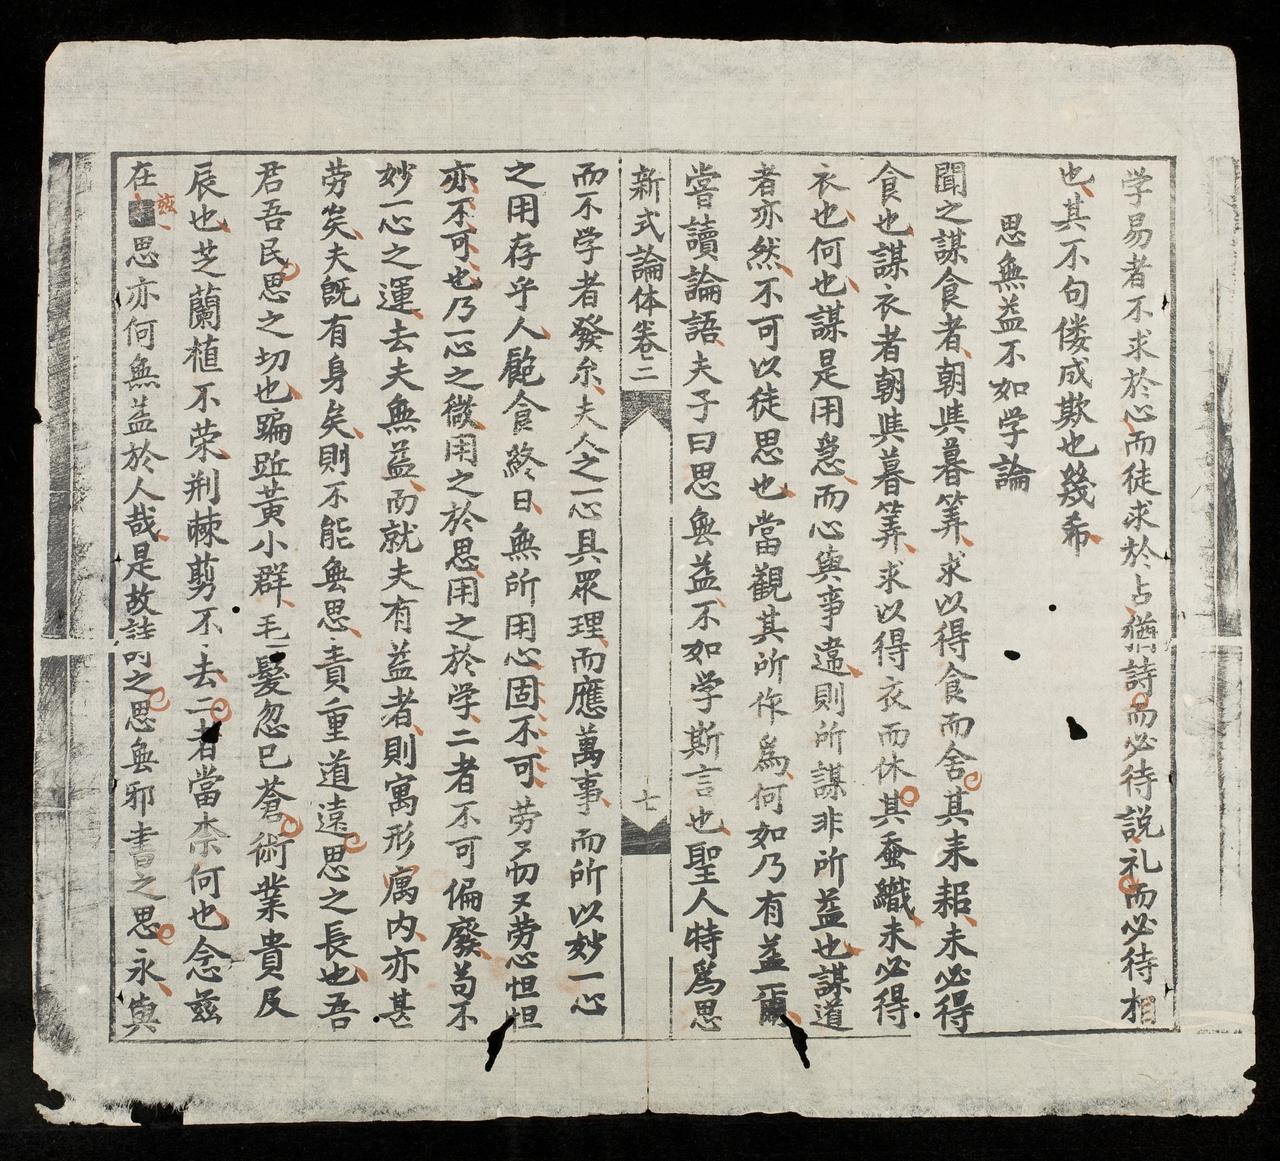 学易者不求於心而徒求於占猶詩而必待説礼而必待相
也其不句倭成欺也幾希
思無益不如学論
聞之謀食者朝與暮筭求以得食而舍其耒耜未必得
食也謀衣者朝與暮筭求以得衣而休其蚕織未必得
衣也何也謀是用急而心與事違則所謀非所益也謀道
者亦然不可以徒思也當觀其所作爲何如乃有益爾
嘗讀論語夫子曰思無益不如学斯言也聖人特爲思
新式論体卷二
七
而不学者發尒夫人之一心具眾理而應萬事而所以妙一心
之用存乎人飽食終日無所用心固不可劳而又劳心怛怛
亦不可也乃一心之微用之於思用之於学二者不可偏廢苟不
妙一心之運去夫無益而就夫有益者則寓形寓内亦甚
劳矣夫既有身矣則不能無思責重道遠思之長也吾
君吾民思之切也騙距黃小群毛髮忽已蒼術業貴及
辰也芝蘭植不荣荆棘剪不去二者當柰何也念兹
在兹思亦何無益於人哉是故詩之思無邪書之思永與